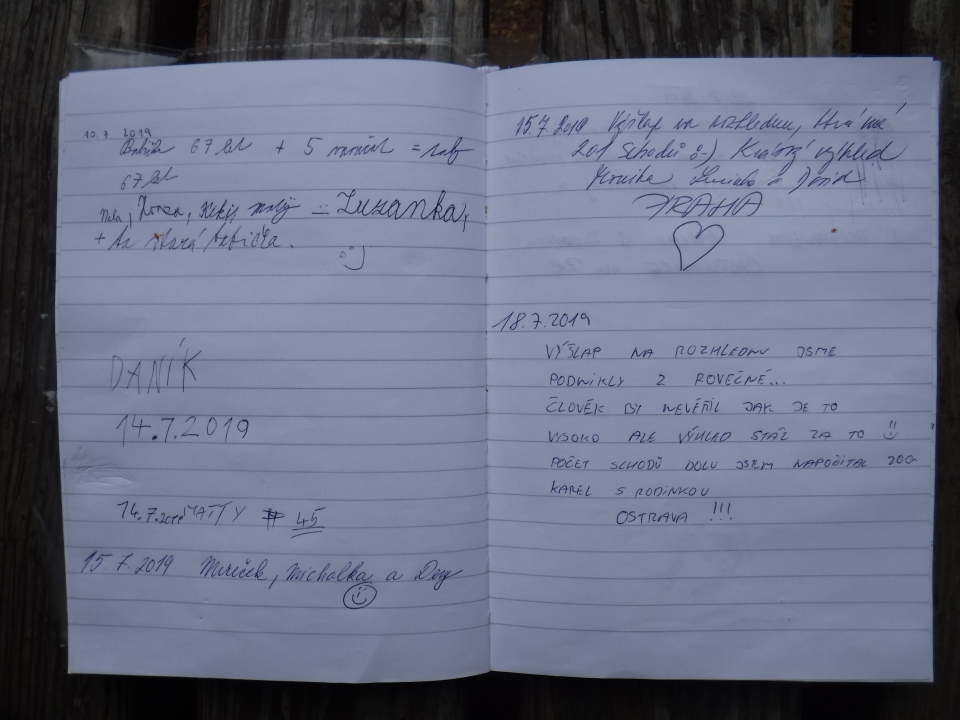 10.7. 2019
67 let + 5 =
67 let
Zuzanka,
+ ta stará tetička.
DANÍK
14.7.2019
14.7.2019 MATTY # 45
15.7.2019 Mireček, Michalka a Dey
15.7.2019 Výšlap na rozhlednu, která má
201 schodů :-) Krásný výhled
Monika Lucinka a David
PRAHA
18.7.2019
VÝŠLAP NA ROZHLEDNU JSME
PODNIKLY Z ROVEČNÉ...
ČLOVĚK BY NEVĚŘIL JAK JE TO
VYSOKO ALE VÝHLED STÁL ZA TO !!
POČET SCHODŮ DOLU JSEM NAPOČÍTAL 200
KAREL S RODINKOU
OSTRAVA !!!